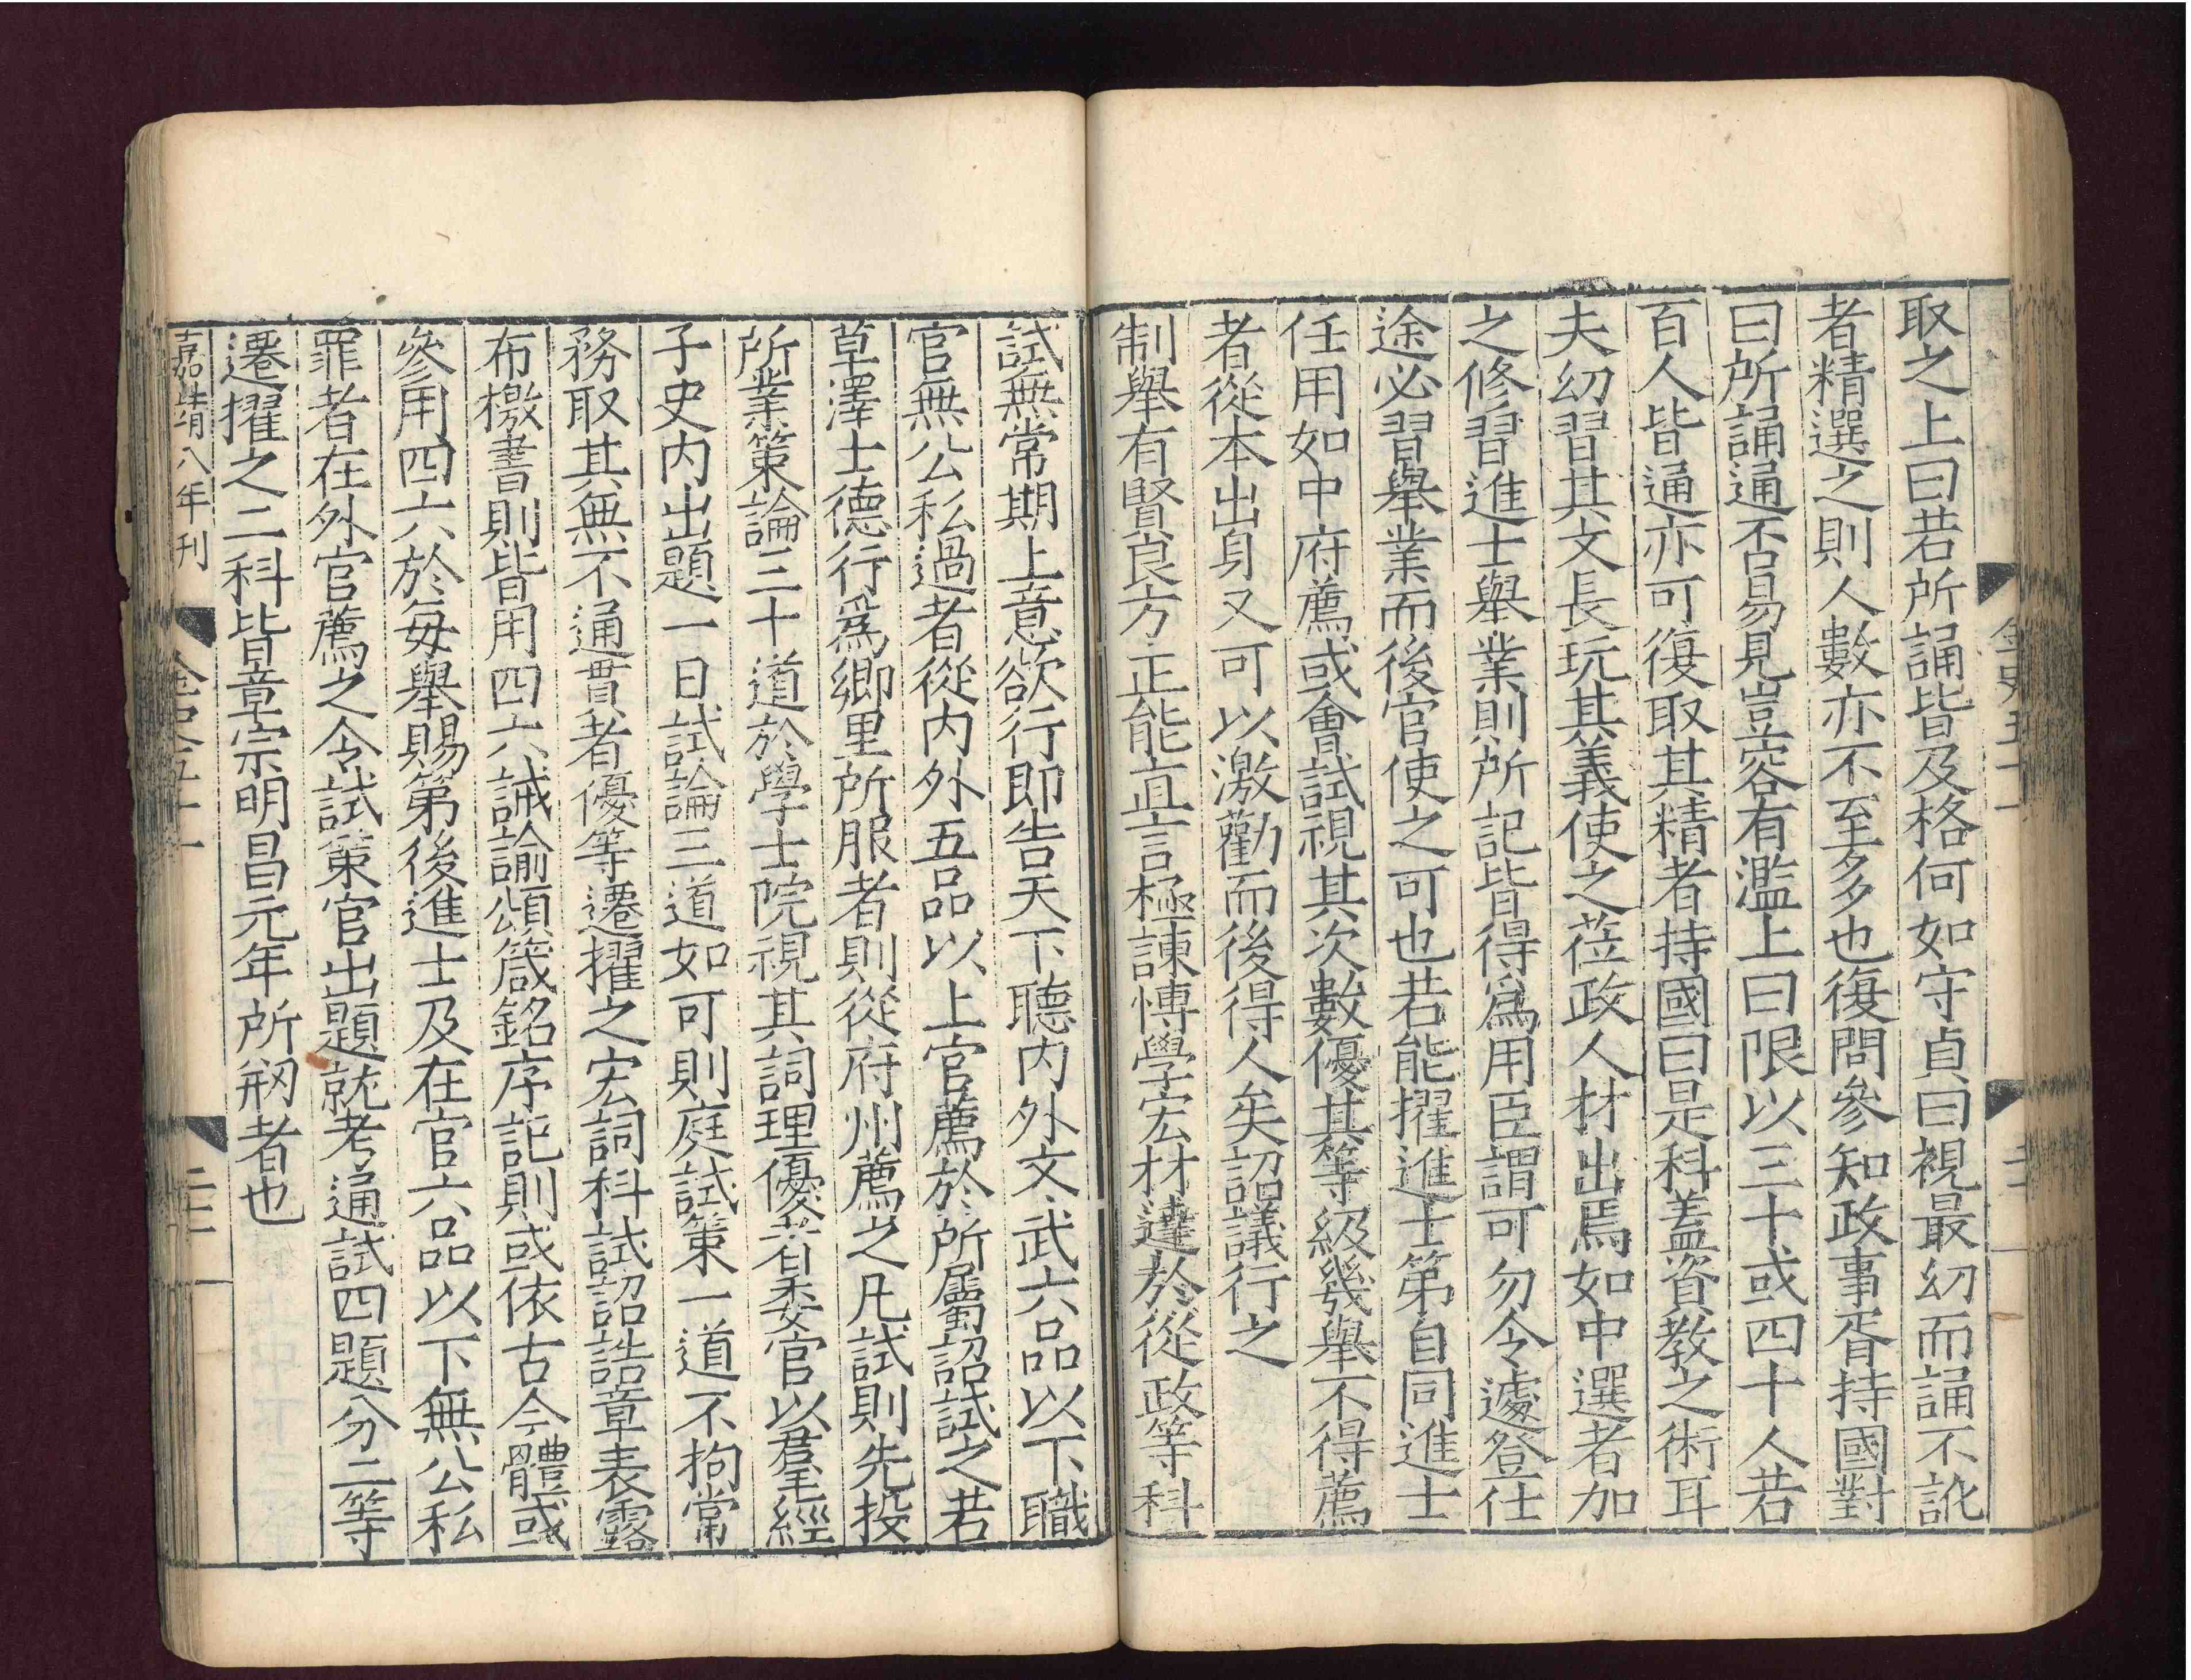 取之上曰若所誦皆及格何如守貞曰視最幼而誦不訛
者精選之則人數亦不至多也復問參知政事胥持國對
曰所誦通否易見豈容有濫上曰限以三十或四十人若
百人皆通亦可復取其精者持國曰是科蓋資教之術耳
夫幼習其文長玩其義使之莅政人材出焉如中選者加
之修習進士舉業則所記皆得爲用臣謂可勿令遽登仕
途必習舉業而後官使之可也若能擢進士第自同進士
任用如中府薦或會試視其次數優其等級幾舉不得薦
者從本出身又可以激勸而後得人矣詔議行之
制舉有賢良方正能直言極諫博學宏材達於從政等科
試無常期上意欲行即告天下聽内外文武六品以下職
官無公私過者從内外五品以上官薦於所屬詔試之若
草澤士德行爲鄉里所服者則從府州薦之凡試則先投
所業策論三十道於學士院視其詞理優者委官以羣經
子史内出題一日試論三道如可則庭試策一道不拘常
務取其無不通貫者優等遷擢之宏詞科試詔誥章表露
布檄書則皆用四六誡諭頌箴銘序記則或依古今體或
參用四六於每舉賜第後進士及在官六品以下無公私
罪者在外官薦之令試策官出題就考通試四題分二等
遷擢之二科皆章宗明昌元年所剏者也
嘉靖八年刊
金史五十一